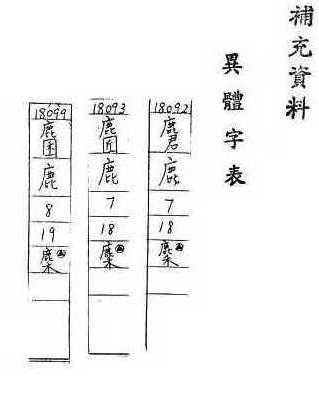 補充資料
異體字表
18092
麏
鹿
7
18
麇
18093
鹿
7
18
麇
麕
鹿
8
19
麇